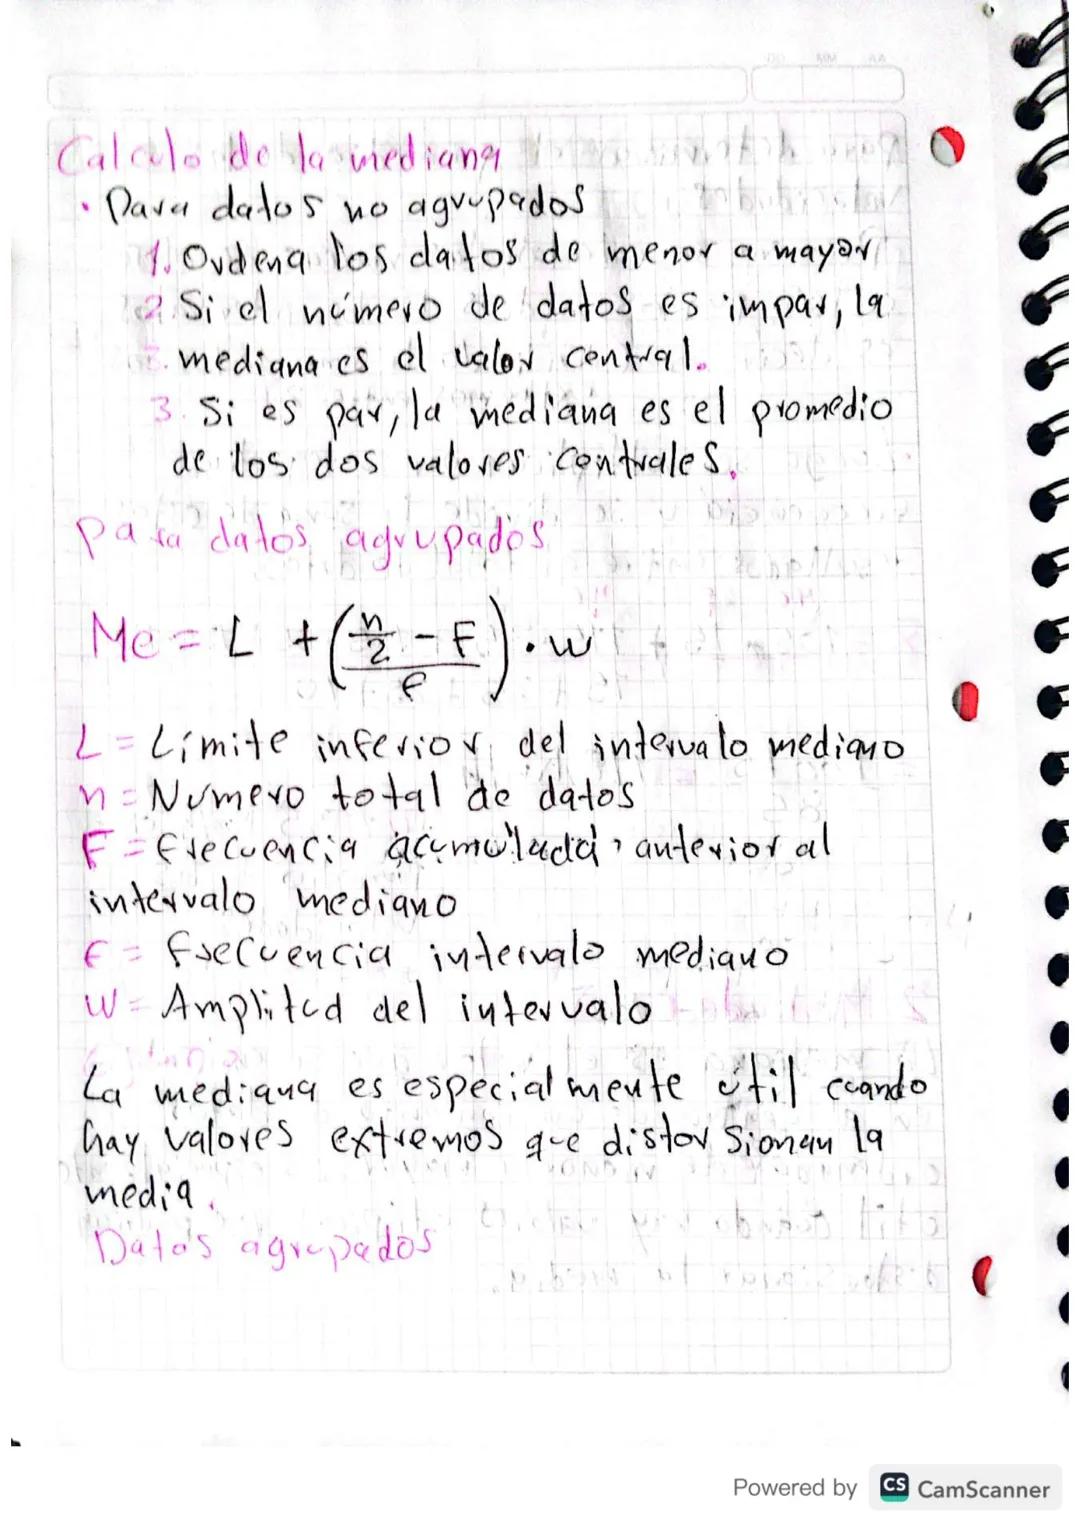 Calculo de la mediana
• Para datos no agrupados
1. Ordena los datos de menor a mayor
2 Si el número de datos es impar, la
mediana es el valor central.
3. Si es par, la mediana es el promedio
de los dos valores centrales.
para datos agrupados
Me = L + ( (n/2 - F) / f ) · w
L = Límite inferior del intervalo mediano
n = Numero total de datos
F = frecuencia acumulada anterior al
intervalo mediano
f = frecuencia intervalo mediano
W = Amplitud del intervalo
La mediana es especialmente útil cuando
hay valores extremos que distorsionan la
media.
Datos agrupados
Powered by CS CamScanner